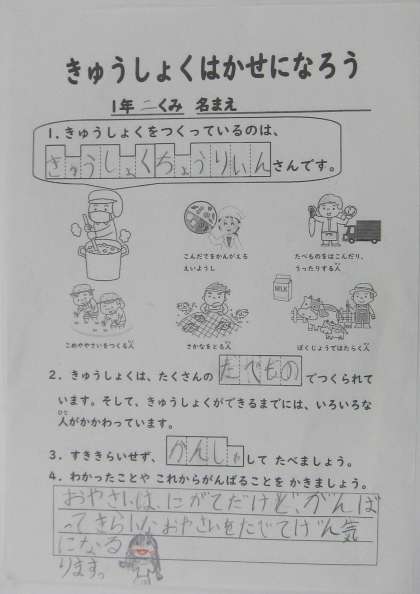 きゅうしょくはかせになろう
1年 二くみ 名まえ
1. きゅうしょくをつくっているのは、
きゅうしょくちょうりいん さんです。
こんだてをかんがえる
えいようし
たべものをはこんだり、
うったりする人
MILK
こめややさいをつくる人
さかなをとる人
ぼくじょうではたらく人
2. きゅうしょくは、たくさんの たべもの でつくられて
います。そして、きゅうしょくができるまでには、いろいろな
人がかかわっています。
3. すききらいせず、かんしゃ して たべましょう。
4. わかったことや これからがんばることを かきましょう。
おやさいは、にがてだけど、がんば
ってきらいなおやさいをたべてげん気
になる
ります。